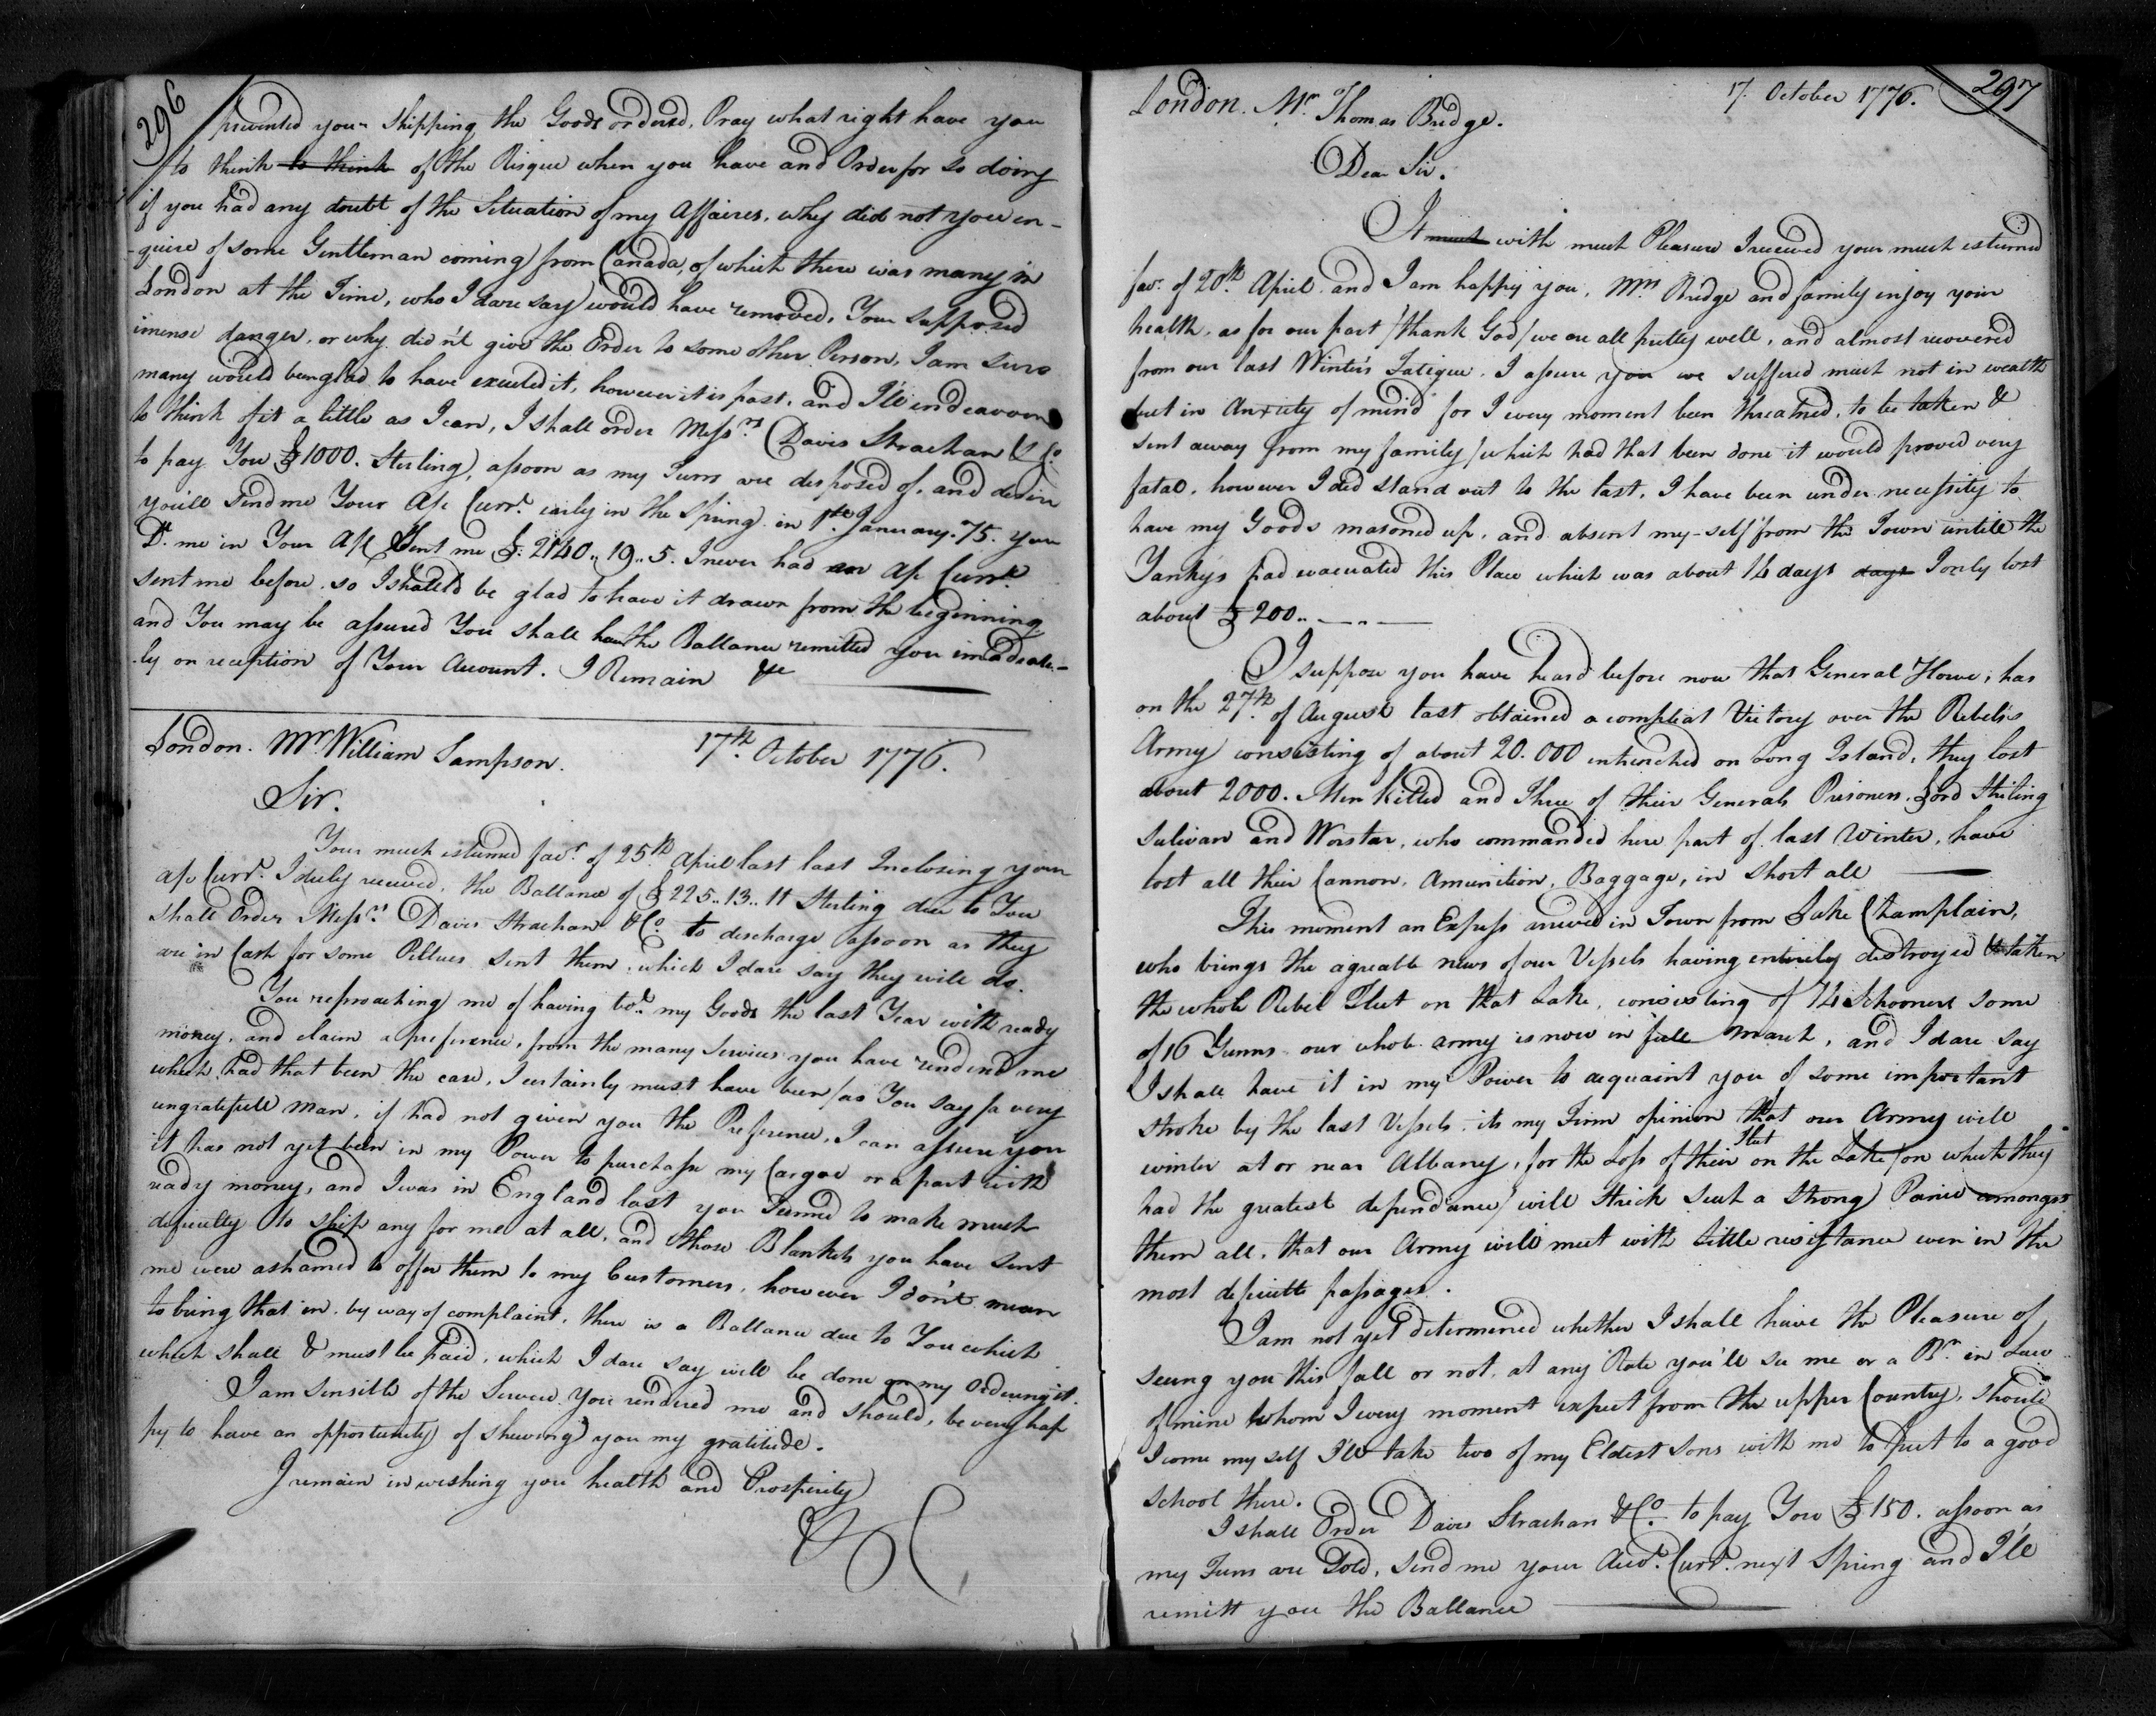 296
prevented your Shipping the Goods ordered, Pray what right have you
to think to think of the Risque when you have and Order for so doing
if you had any doubt of the Situation of my Affaires, why did not you en-
-quire of some Gentleman coming from Canada, of which there was many in
London at the Time, who I dare say would have removed, Your supposed
imense danger, or why did n't give the Order to some other Person, I am sure
many would been glad to have executed it, however it is past, and I'll endeavour
to think of it a little as I can, I shall order Messrs. Davis Strachan & Co.
to pay You £1000. Sterling, assoon as my Furrs are disposed of, and desire
you'll send me Your A/c Currt. early in the Spring. in 1st. January. 75. you
Dr. me in Your A/c Sent me £. 2140.. 19.. 5. I never had an A/c Currt.
sent me before, so I should be glad to have it drawn from the beginning
and You may be assured You shall have the Ballance remitted you imadiate-
-ly on reception of Your Account. I Remain &c
London. Mr. William Sampson. 17th. October 1776.
Sir.
Your much esteemed favr. of 25th April last last Inclosing your
a/c Currt. I duly received, the Ballance of £225.. 13.. 11 Sterling due to You
shall Order Messrs. Davis Strachan & Co. to discharge assoon as they
are in Cash for some Peltries sent them, which I dare say they will do.
You reproaching me of having bot. my Goods the last Year with ready
money, and claim a preference, from the many Services you have rendered me
which had that been the case, I certainly must have been /as You say/ a very
ungratefull man, if had not given you the Preference, I can assure you
it has not yet been in my Power to purchase my Cargoe or a part with
ready money, and I was in England last you Seemed to make much
deficulty to ship any for me at all, and those Blankets you have sent
me were ashamed to offer them to my Customers, however I don't mean
to bring that in. by way of complaint, there is a Ballance due to You which
which shall & must be paid, which I dare say will be done on my Ordering it.
I am sensible of the Service You rendered me and should, be very hap
py to have an opportunity of shewing you my gratitude.
I remain in wishing you health and Prosperity
297
London. Mr. Thomas Bridge. 17. October 1776.
Dear Sir.
It much with much Pleasure I received your much esteemed
favr. of 20th. April and I am happy you, Mrs. Bridge and family enjoy your
health, as for our part /thank God/ we are all pretty well, and almost recovered
from our last Winter's Fatigue. I assure you we suffered much not in wealth
but in Anxiety of mind for I every moment been threatned, to be taken &
sent away from my family /which had that been done it would proved very
fatal, however I did stand out to the last, I have been under necessity to
have my Goods masoned up, and absent my-self from the Town untill the
Yankys had evacuated this Place which was about 14 days days I only lost
about £200..
I suppose you have heard before now that General Howe, has
on the 27th. of August last obtained a compleat Victory over the Rebels
Army consisting of about 20.000 intrenched on Long Island, they lost
about 2000. Men Killed and Three of their Generals Prisoners, Lord Stirling
Sulivan and Worstar, who commanded here part of last Winter, have
lost all their Cannon, Amunition, Baggage, in short all
This moment an Express arrived in Town from Lake Champlain,
who brings the agreable news of our Vessels having entirely destroyed & taken
the whole Rebel Fleet on that Lake, consisting of 14 Schooners some
of 16 Gunns our whole army is now in full March, and I dare say
I shall have it in my Power to acquaint you of some important
stroke by the last Vessels. its my Firm opinion that our Army will
winter at or near Albany, for the Loss of their Fleet on the Lake /on which they
had the greatest dependance/ will strick such a strong Panic amongst
them all, that our Army will meet with little resistance even in the
most deficult passages.
I am not yet determened whether I shall have the Pleasure of
seeing you this fall or not, at any Rate you'll see me or a Br. in Law
of mine whom I every moment expect from the upper Country, should
I come my self I'll take two of my Eldest Sons with me to put to a good
School there.
I shall Order Davis Strachan & Co. to pay You £150. assoon as
my Furrs are Sold, send me your Acct. Currt. next Spring and I'll
remitt you the Ballance